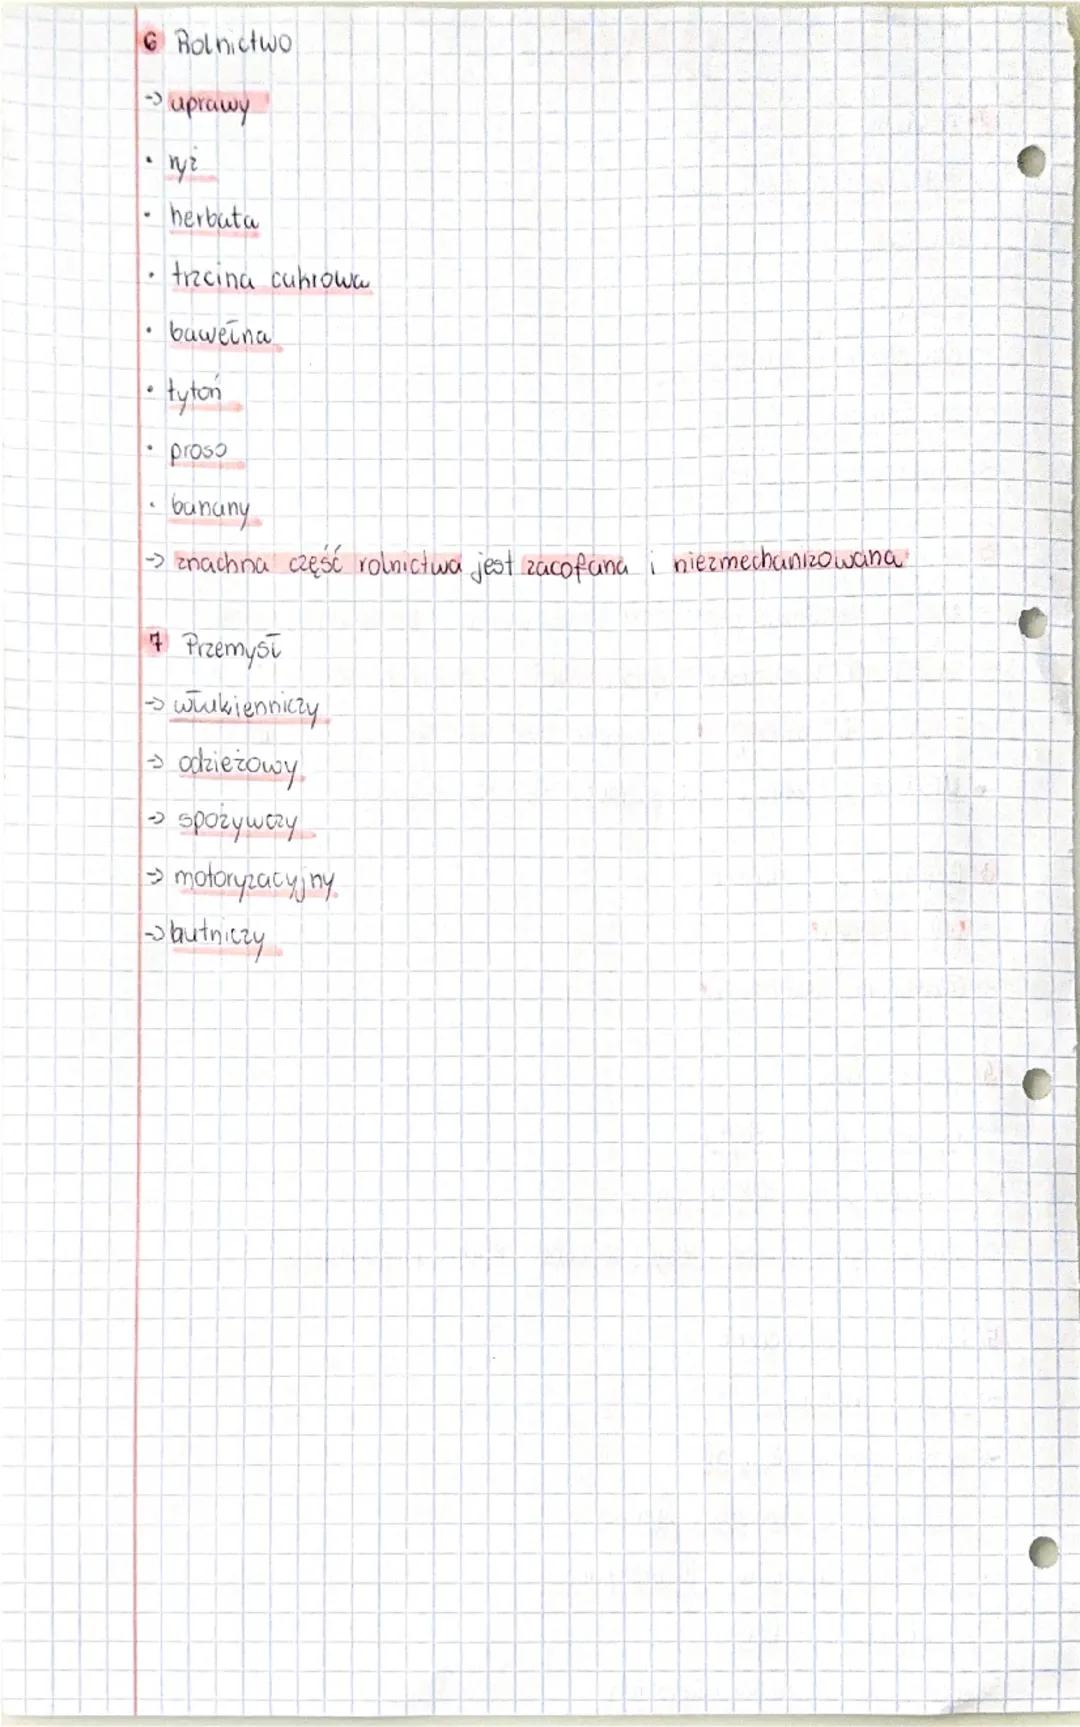 6 Rolnictwo
-> uprawy
• ryż
• herbata
• trzcina cukrowa
• bawełna
• tytoń
• proso
• banany
-> znaczna część rolnictwa jest zacofana i niezmechanizowana
7 Przemysł
-> włukienniczy
-> odzieżowy
-> spożywczy
-> motoryzacyjny
-> hutniczy